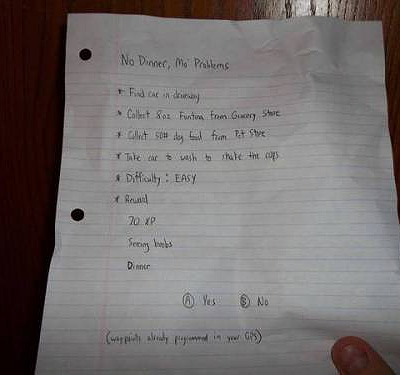 No Dinner, Mo' Problems
* Find car in driveway
* Collect 8oz Fontina from Grocery Store
* Collect 50# dog food from Pet Store
* Take car to wash to shake the cops
* Difficulty: EASY
* Reward
70 XP
Seeing boobs
Dinner
A Yes B No
(waypoints already programmed in your GPS)